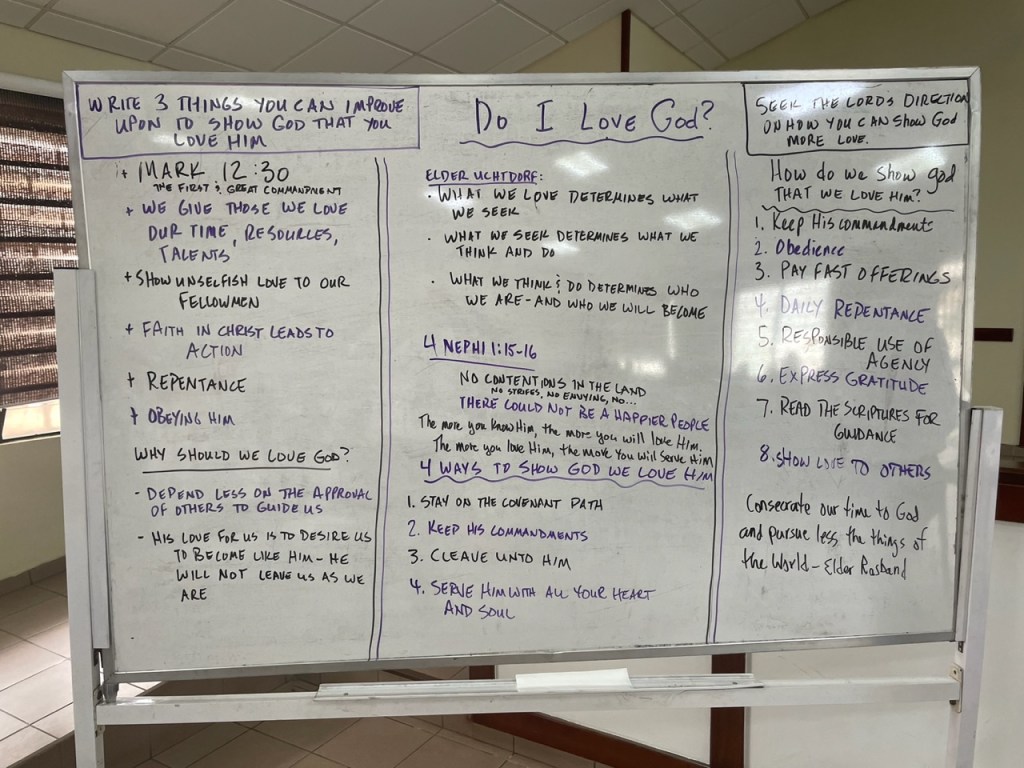 WRITE 3 THINGS YOU CAN IMPROVE
UPON TO SHOW GOD THAT YOU
LOVE HIM
+ MARK 12:30
THE FIRST & GREAT COMMANDMENT
+ WE GIVE THOSE WE LOVE
OUR TIME, RESOURCES,
TALENTS
+ SHOW UNSELFISH LOVE TO OUR
FELLOWMEN
+ FAITH IN CHRIST LEADS TO
ACTION
+ REPENTANCE
+ OBEYING HIM
WHY SHOULD WE LOVE GOD?
- DEPEND LESS ON THE APPROVAL
OF OTHERS TO GUIDE US
- HIS LOVE FOR US IS TO DESIRE US
TO BECOME LIKE HIM - HE
WILL NOT LEAVE US AS WE
ARE
DO I LOVE GOD?
ELDER UCHTDORF:
· WHAT WE LOVE DETERMINES WHAT
WE SEEK
· WHAT WE SEEK DETERMINES WHAT WE
THINK AND DO
· WHAT WE THINK & DO DETERMINES WHO
WE ARE - AND WHO WE WILL BECOME
4 NEPHI 1:15-16
NO CONTENTIONS IN THE LAND
NO STRIFES, NO ENVYING, NO...
THERE COULD NOT BE A HAPPIER PEOPLE
The more you know Him, the more you will love Him.
The more you love Him, the more You will serve Him
4 WAYS TO SHOW GOD WE LOVE HIM
1. STAY ON THE COVENANT PATH
2. KEEP HIS COMMANDMENTS
3. CLEAVE UNTO HIM
4. SERVE HIM WITH ALL YOUR HEART
AND SOUL
SEEK THE LORDS DIRECTION
ON HOW YOU CAN SHOW GOD
MORE LOVE.
How do we show god
THAT WE LOVE HIM?
1. Keep His commandments
2. Obedience
3. PAY FAST OFFERINGS
4. DAILY REPENTANCE
5. RESPONSIBLE USE OF
AGENCY
6. EXPRESS GRATITUDE
7. READ THE SCRIPTURES FOR
GUIDANCE
8. SHOW LOVE TO OTHERS
Consecrate our time to God
and pursue less the things of
the World - Elder Rasband